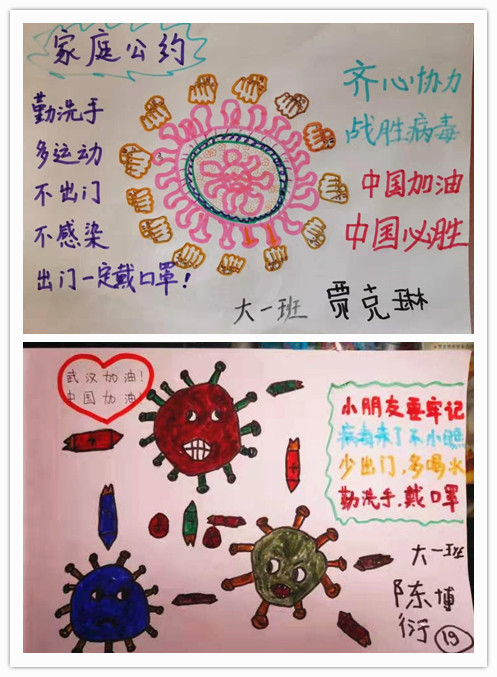 家庭公约
勤洗手
多运动
不出门
不感染
出门一定戴口罩!
齐心协力
战胜病毒
中国加油
中国必胜
大一班 贾克琳
武汉加油!
中国加油
小朋友要牢记
病毒来了不小瞧
少出门,多喝水
勤洗手,戴口罩
大一班
陈博
衍
19